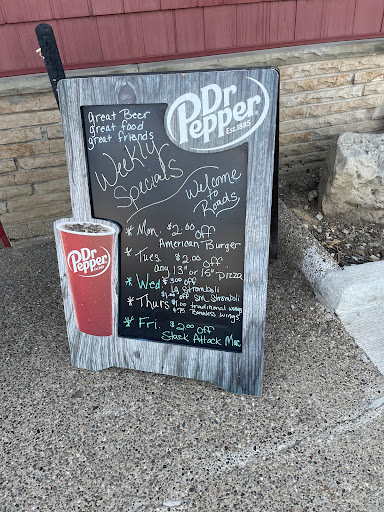 Dr Pepper
EST. 1885
great Beer
great food
great friends
Weekly
Specials
Welcome
to
Roads.
* Mon. $2.00 Off
American Burger
* Tues. $2.00 Off
any 13" or 15" Pizza
* Wed $3.00 Off
Lg Stromboli
$1.00 Off Sm. Stromboli
* Thurs $1.00 traditional wings
$.75 Boneless wings
* Fri. $2.00 Off
Stack Attack
Dr Pepper